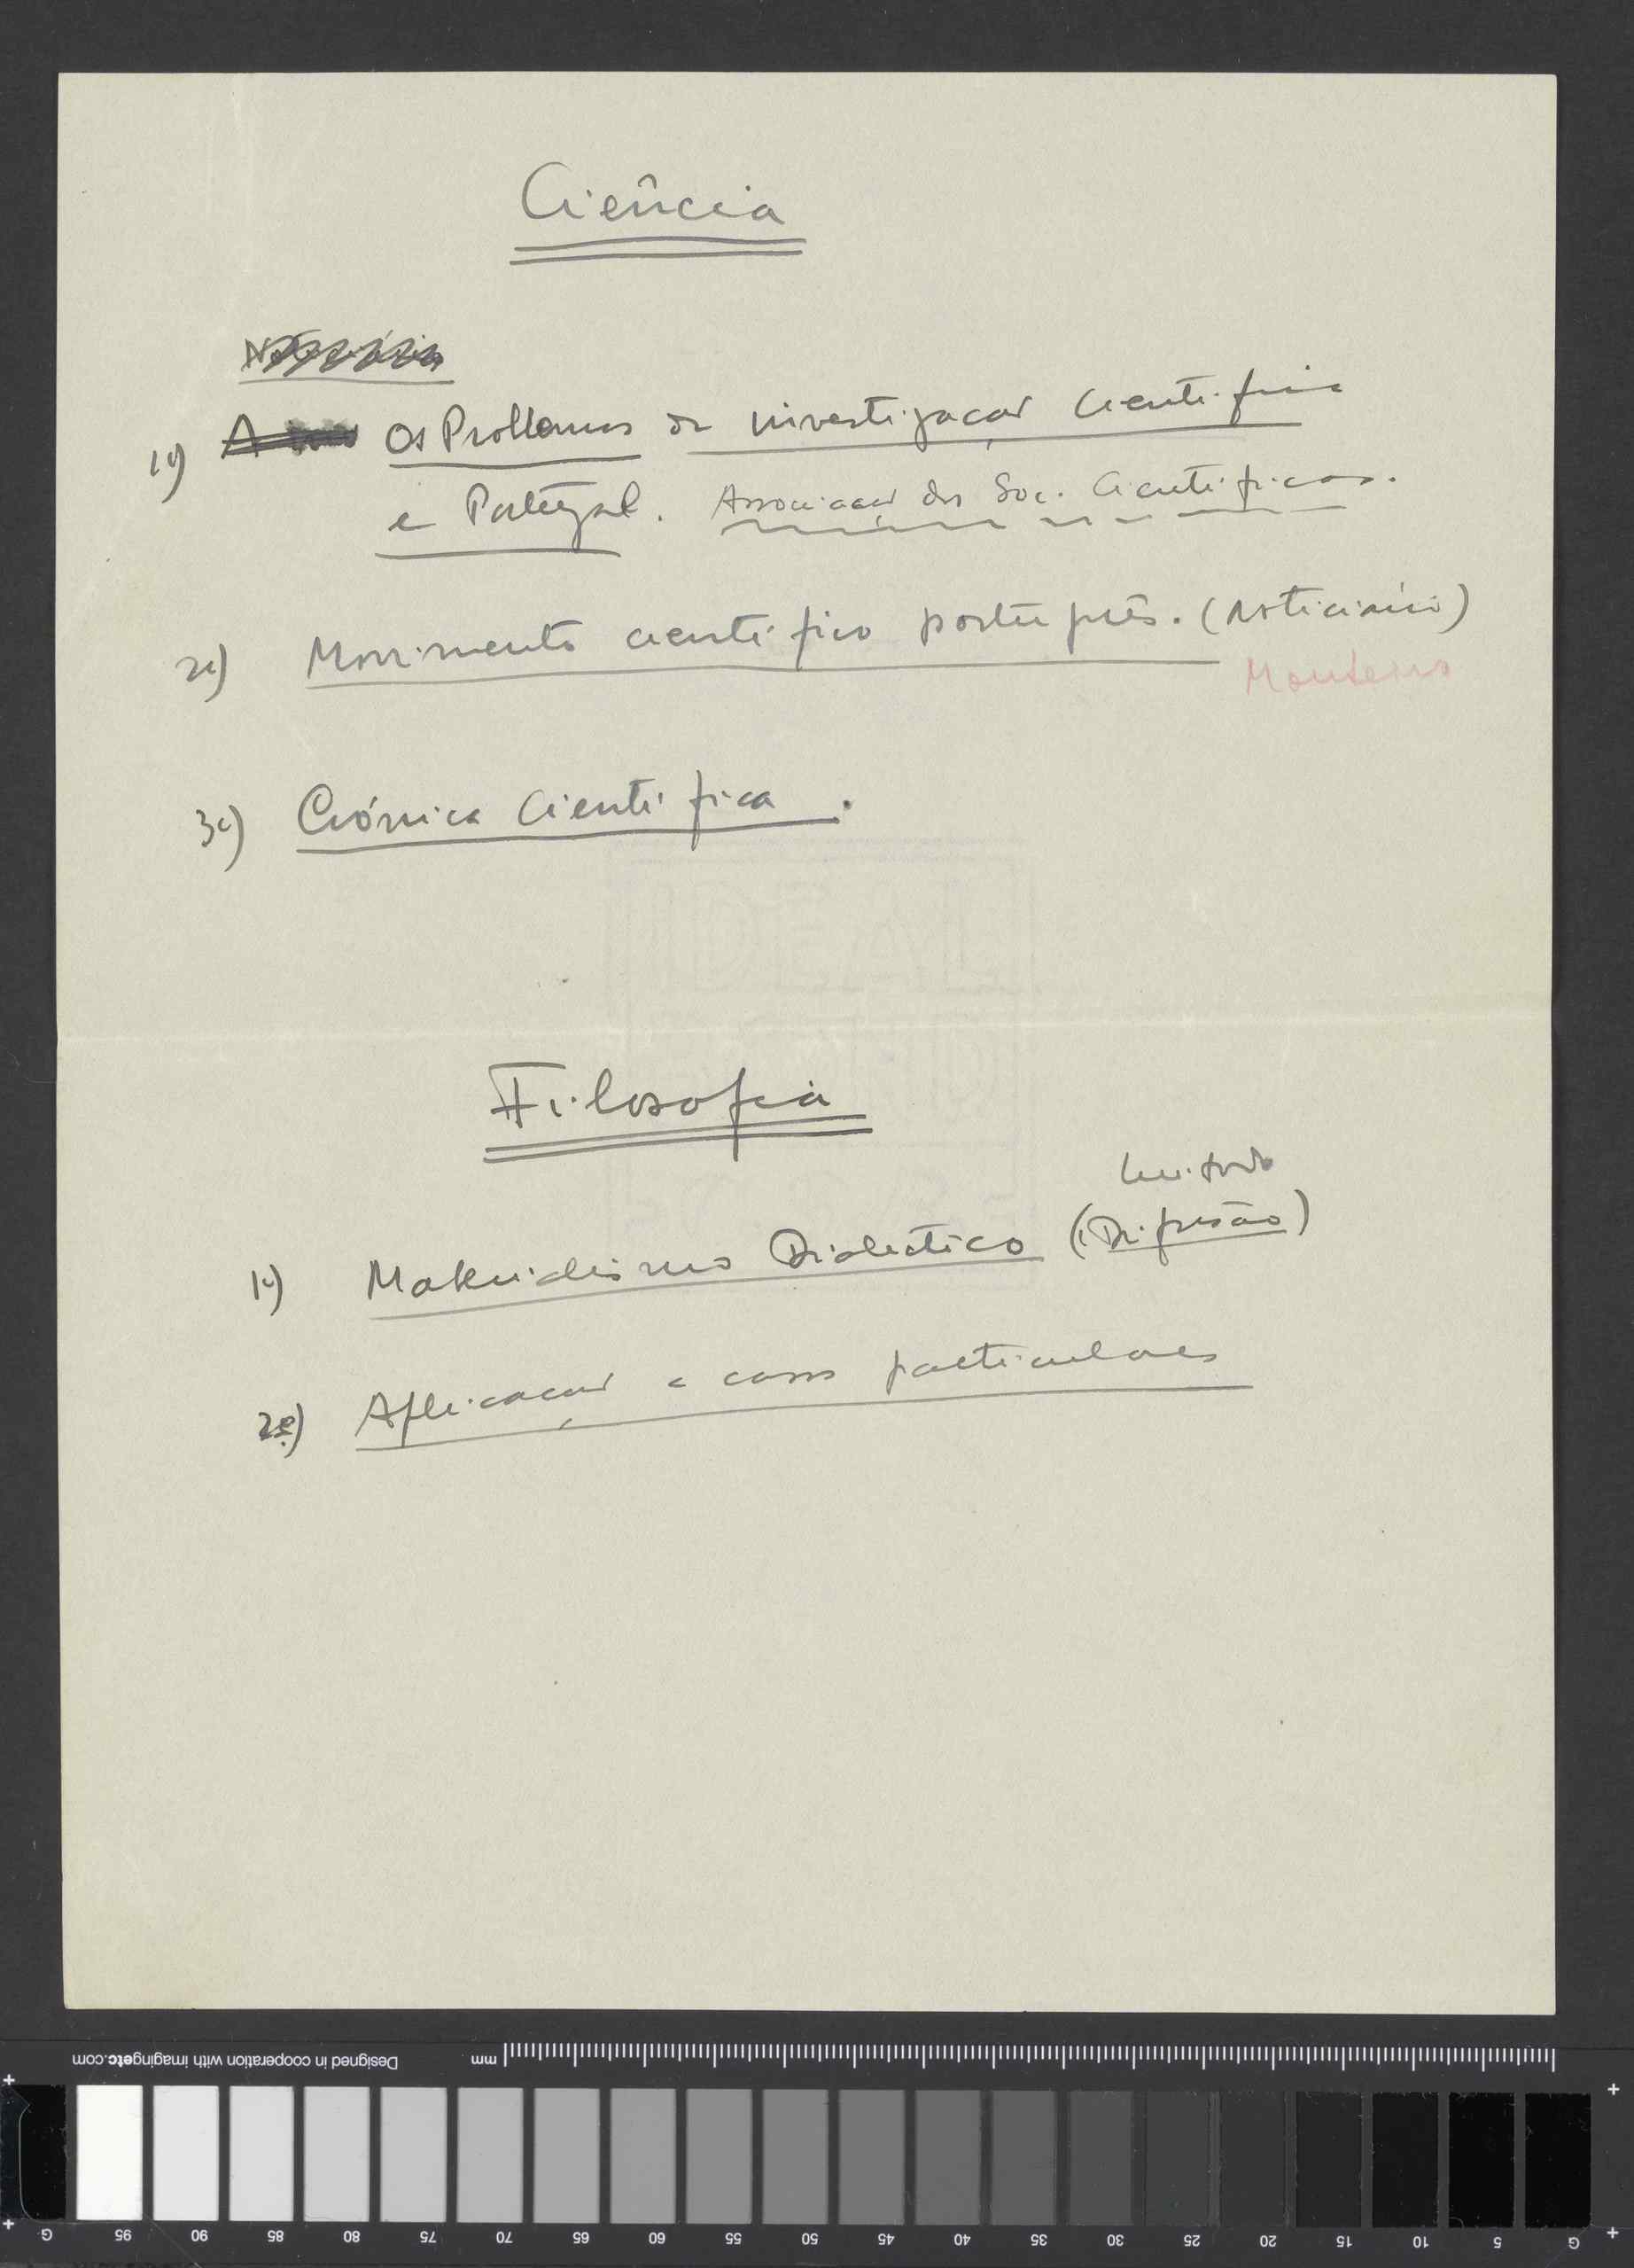 Ciência
1º) Os Problemas da investigação Cientifica
e Portugal. Associação das Soc. Cientificas.
2º) Movimento cientifico português. (Noticiário)
Monteiro
3º) Crónica Cientifica.
Filosofia
1º) Materialismo Dialectico (Difusão)
2º) Aplicação a casos particulares
Designed in cooperation with imagingetc.com
mm
G 95 90 85 80 75 70 65 60 55 50 45 40 35 30 25 20 15 10 5 G